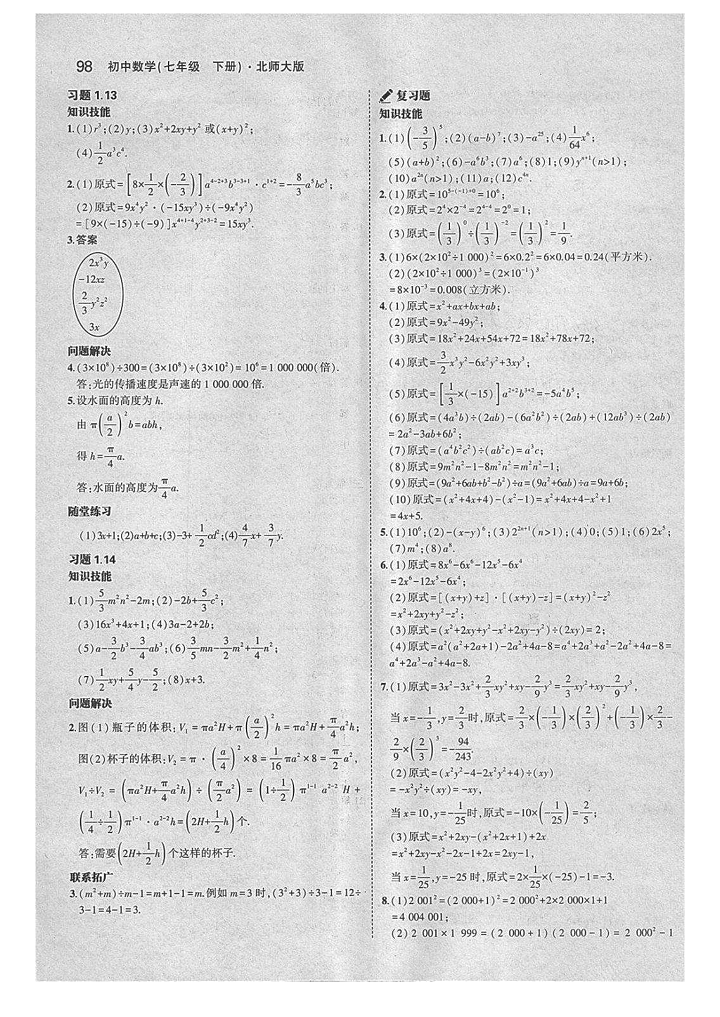 98 初中数学(七年级 下册)·北师大版
习题1.13
知识技能
1.(1)r³;(2)y;(3)x²+2xy+y² 或(x+y)²;
(4)1/2 a³c⁴.
2.(1)原式=[8×1/2×(-2/3)]a⁴⁻²⁺³b³⁻³⁺¹·c¹⁺²=-8/3 a⁵bc³;
(2)原式=9x⁴y²·(-15xy³)÷(-9x⁴y²)
=[9×(-15)÷(-9)]x⁴⁺¹⁻⁴y²⁺³⁻²=15xy³.
3.答案
2x³y
-12xz
2/3 y²z²
3x
问题解决
4.(3×10⁸)÷300=(3×10⁸)÷(3×10²)=10⁶=1 000 000(倍).
答:光的传播速度是声速的1 000 000倍.
5.设水面的高度为h.
由 π(a/2)²b=abh,
得h=π/4 a.
答:水面的高度为π/4 a.
随堂练习
(1)3x+1;(2)a+b+c;(3)-3+1/2 cd²;(4)4/7 x+3/7 y.
习题1.14
知识技能
1.(1)5/3 m²n²-2m;(2)-2b+5/3 c²;
(3)16x³+4x+1;(4)3a-2+2b;
(5)a-3/2 b³-3/4 ab³;(6)3/5 mn-2/3 m²+1/4 n²;
(7)1/2 xy+5/4 y-5/2;(8)x+3.
问题解决
2.图(1)瓶子的体积:V₁=πa²H+π(a/2)²h=πa²H+π/4 a²h;
图(2)杯子的体积:V₂=π·(a/4)²×8=1/16 πa²×8=π/2 a²,
V₁÷V₂=(πa²H+π/4 a²h)÷(π/2 a²)=(1÷1/2)π¹⁻¹ a²⁻² H+
(1/4÷1/2)π¹⁻¹·a²⁻²h=(2H+1/2 h)个.
答:需要(2H+1/2 h)个这样的杯子.
联系拓广
3.(m²+m)÷m-1=m+1-1=m.例如m=3时,(3²+3)÷3-1=12÷
3-1=4-1=3.
复习题
知识技能
1.(1)(-3/5)⁵;(2)(a-b)⁷;(3)-a²⁵;(4)1/64 x⁶;
(5)(a+b)²;(6)-a⁶b³;(7)a⁶;(8)1;(9)yⁿ⁺¹(n>1);
(10)a²ⁿ(n>1);(11)a;(12)c⁴ⁿ.
2.(1)原式=10⁵⁻⁽⁻¹⁾⁺⁰=10⁶;
(2)原式=2⁴×2⁻⁴=2⁴⁻⁴=2⁰=1;
(3)原式=(1/3)⁰÷(1/3)⁻²=(1/3)²=1/9.
3.(1)6×(2×10²÷1 000)²=6×0.2²=6×0.04=0.24(平方米).
(2)(2×10²÷1 000)³=(2×10⁻¹)³
=8×10⁻³=0.008(立方米).
4.(1)原式=x²+ax+bx+ab;
(2)原式=9x²-49y²;
(3)原式=18x²+24x+54x+72=18x²+78x+72;
(4)原式=3/2 x³y²-6x²y²+3xy³;
(5)原式=[1/3×(-15)]a²⁺²b³⁺²=-5a⁴b⁵;
(6)原式=(4a³b)÷(2ab)-(6a²b²)÷(2ab)+(12ab³)÷(2ab)
=2a²-3ab+6b²;
(7)原式=(a⁴b²c²)÷(ab²c)=a³c;
(8)原式=9m²n²-1-8m²n²=m²n²-1;
(9)原式=(9a²+6ab+b²-b²)÷a=(9a²+6ab)÷a=9a+6b;
(10)原式=(x²+4x+4)-(x²-1)=x²+4x+4-x²+1
=4x+5.
5.(1)10⁶;(2)-(x-y)⁶;(3)2²ⁿ⁺¹(n>1);(4)0;(5)1;(6)2x⁵;
(7)m⁴;(8)a⁸.
6.(1)原式=8x⁶-6x⁶-12x⁵-6x⁴
=2x⁶-12x⁵-6x⁴;
(2)原式=[(x+y)+z]·[(x+y)-z]=(x+y)²-z²
=x²+2xy+y²-z²;
(3)原式=(x²+2xy+y²-x²+2xy-y²)÷(2xy)=2;
(4)原式=a²(a²+2a+1)-2a²+4a-8=a⁴+2a³+a²-2a²+4a-8=
a⁴+2a³-a²+4a-8.
7.(1)原式=3x²-3x²+2/3 xy²+xy-2/9 y³=2/3 xy²+xy-2/9 y³,
当x=-1/3,y=2/3时,原式=2/3×(-1/3)×(2/3)²+(-1/3)×2/3-
2/9×(2/3)³=-94/243.
(2)原式=(x²y²-4-2x²y²+4)÷(xy)
=-x²y²÷(xy)=-xy,
当x=10,y=-1/25时,原式=-10×(-1/25)=2/5;
(3)原式=x²+2xy-(x²+2x+1)+2x
=x²+2xy-x²-2x-1+2x=2xy-1,
当x=1/25,y=-25时,原式=2×1/25×(-25)-1=-3.
8.(1)2 001²=(2 000+1)²=2 000²+2×2 000×1+1
=4 004 001;
(2)2 001×1 999=(2 000+1)(2 000-1)=2 000²-1